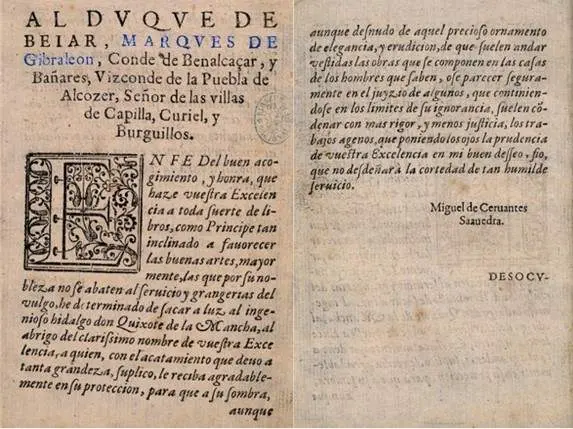 AL DVQVE DE
BEIAR, MARQVES DE
Gibraleon, Conde de Benalcaçar, y
Bañares, Vizconde de la Puebla de
Alcozer, Señor de las villas
de Capilla, Curiel, y
Burguillos.
EN FE Del buen aco-
gimiento, y honra, que
haze vuestra Excelen
cia a toda suerte de li-
bros, como Principe tan
inclinado a fauorecer
las buenas artes, mayor
mente, las que por su no-
bleza no se abaten al seruicio y grangerias del
vulgo, he determinado de sacar a luz, al inge-
nioso hidalgo don Quixote de la Mancha, al
abrigo del clarissimo nombre de vuestra Exce
lencia, a quien, con el acatamiento que deuo a
tanta grandeza, suplico, le reciba agradable-
mente en su proteccion, para que a su sombra,
aunque
aunque desnudo de aquel precioso ornamento
de elegancia, y erudicion, de que suelen andar
vestidas las obras que se componen en las casas
de los hombres que saben, ose parecer segura-
mente en el juyzio de algunos, que continien-
dose en los limites de su ignorancia, suelen cõ-
denar con mas rigor, y menos justicia, los tra-
bajos agenos, que poniendo los ojos la prudencia
de vuestra Excelencia en mi buen desseo, fio,
que no desdeñarà la cortedad de tan humilde
seruicio.
Miguel de Ceruantes
Saauedra.
DESOCV-